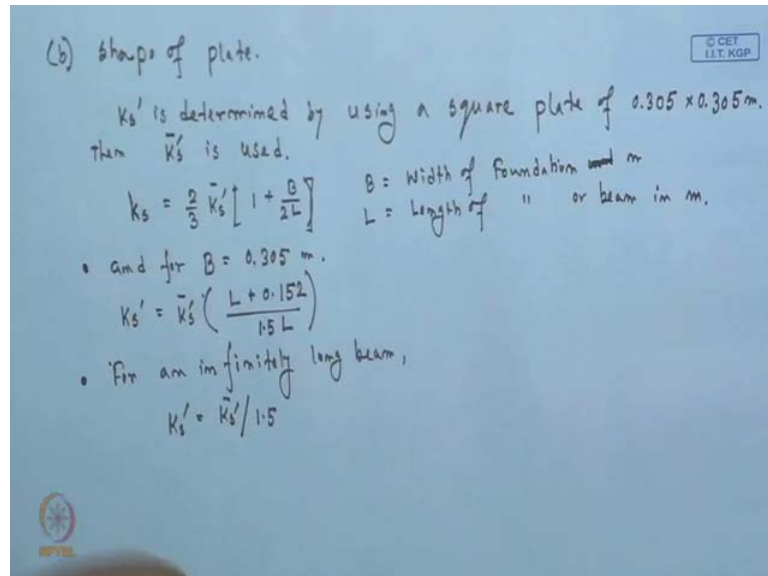 (b) shape of plate.
© CET
I.I.T. KGP
Ks' is determined by using a square plate of 0.305 × 0.305 m.
Then K̄s' is used.
ks = 2/3 K̄s' [ 1 + B/2L ]
B = Width of foundation m
L = Length of " or beam in m.
• and for B = 0.305 m.
Ks' = K̄s' ( L + 0.152 / 1.5 L )
• For an infinitely long beam,
Ks' = K̄s' / 1.5
NPTEL